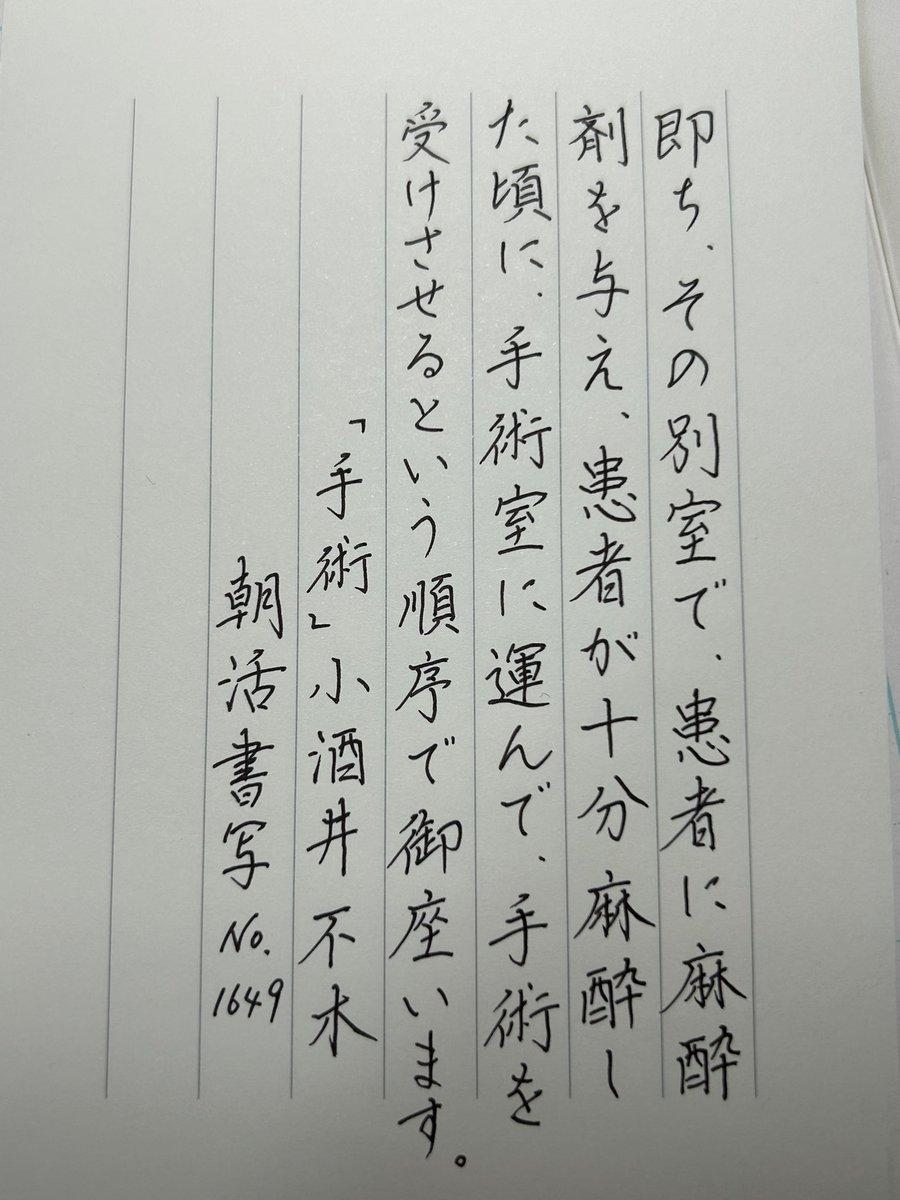 即ち、その別室で、患者に麻酔
剤を与え、患者が十分麻酔し
た頃に、手術室に運んで、手術を
受けさせるという順序で御座います。
「手術」小酒井不木
朝活書写No.1649